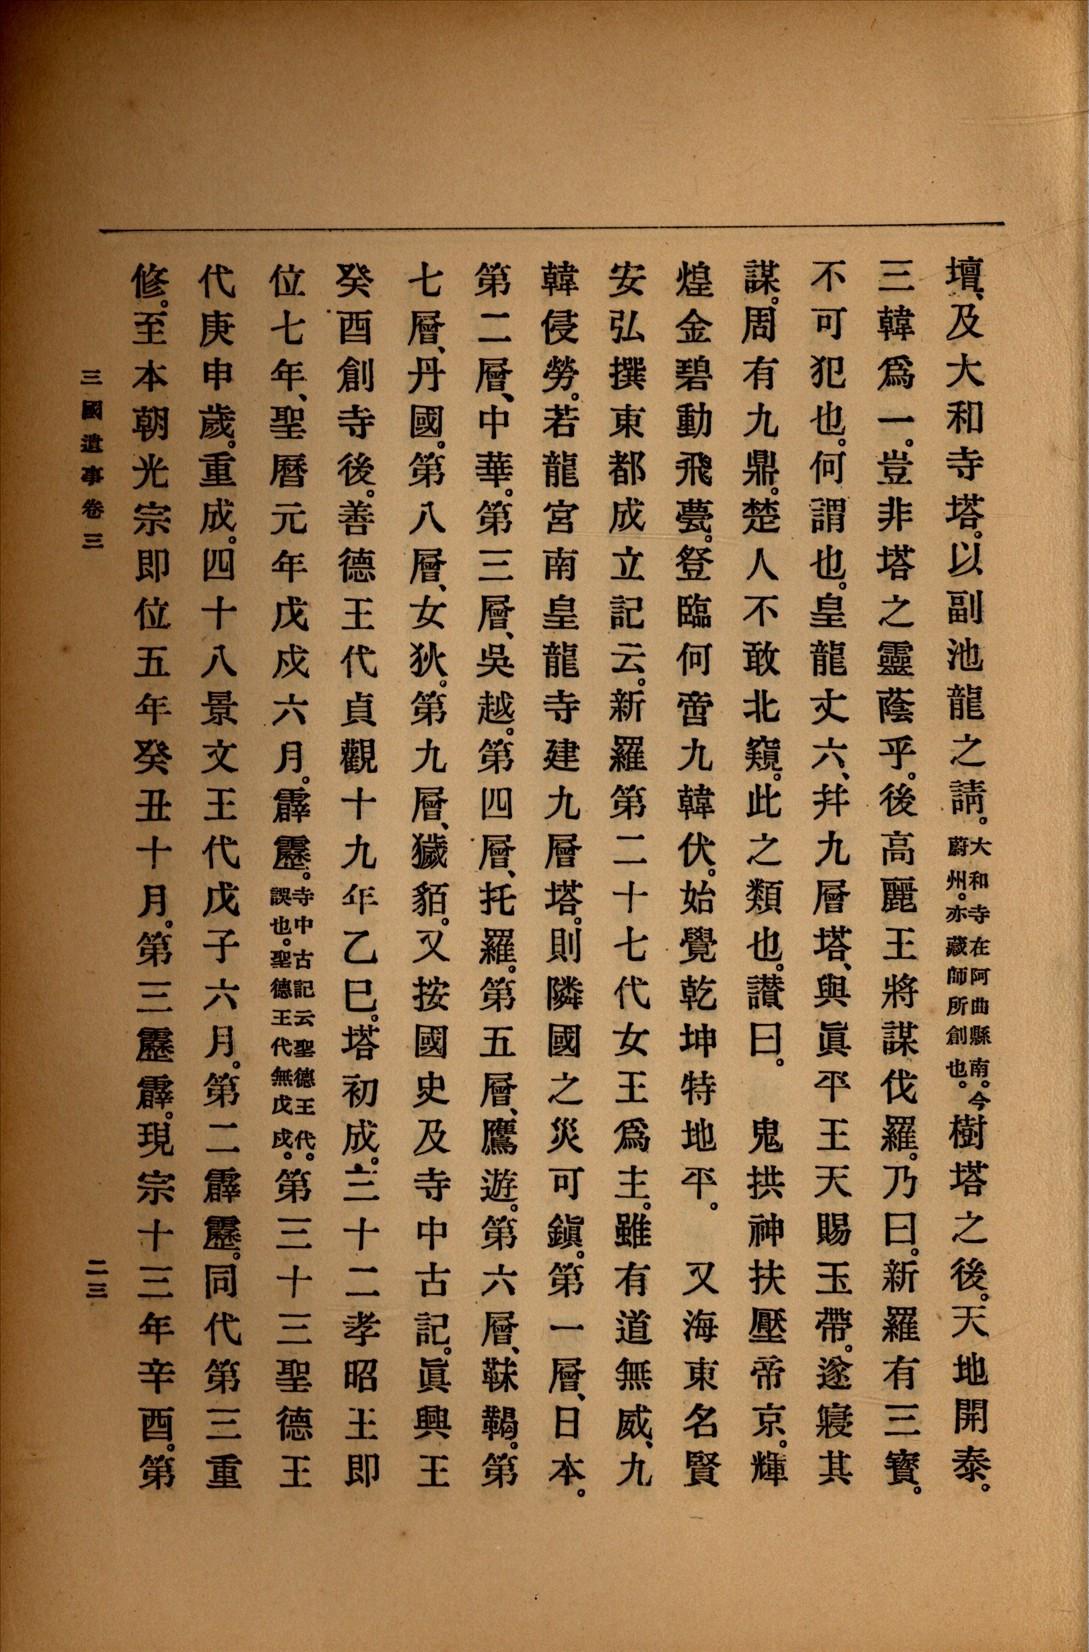 壇、及大和寺塔。以副池龍之請。大和寺在阿曲縣南。今蔚州。亦藏師所創也。樹塔之後。天地開泰。
三韓爲一。豈非塔之靈蔭乎。後高麗王將謀伐羅。乃曰。新羅有三寶。
不可犯也。何謂也。皇龍丈六、幷九層塔、與眞平王天賜玉帶。遂寢其
謀。周有九鼎。楚人不敢北窺。此之類也。讃曰。　鬼拱神扶壓帝京。輝
煌金碧動飛甍。登臨何啻九韓伏。始覺乾坤特地平。　又海東名賢
安弘撰東都成立記云。新羅第二十七代女王爲主。雖有道無威、九
韓侵勞。若龍宮南皇龍寺建九層塔。則隣國之災可鎭。第一層、日本。
第二層、中華。第三層、吳越。第四層、托羅。第五層、鷹遊。第六層、靺鞨。第
七層、丹國。第八層、女狄。第九層、獩貊。又按國史及寺中古記。眞興王
癸酉創寺後。善德王代貞觀十九年乙巳。塔初成。三十二孝昭王即
位七年、聖曆元年戊戌六月。霹靂。寺中古記云聖德王代。誤也。聖德王代無戊戌。第三十三聖德王
代庚申歲。重成。四十八景文王代戊子六月。第二霹靂。同代第三重
修。至本朝光宗即位五年癸丑十月。第三靂霹。現宗十三年辛酉。第
三國遺事卷三
二三